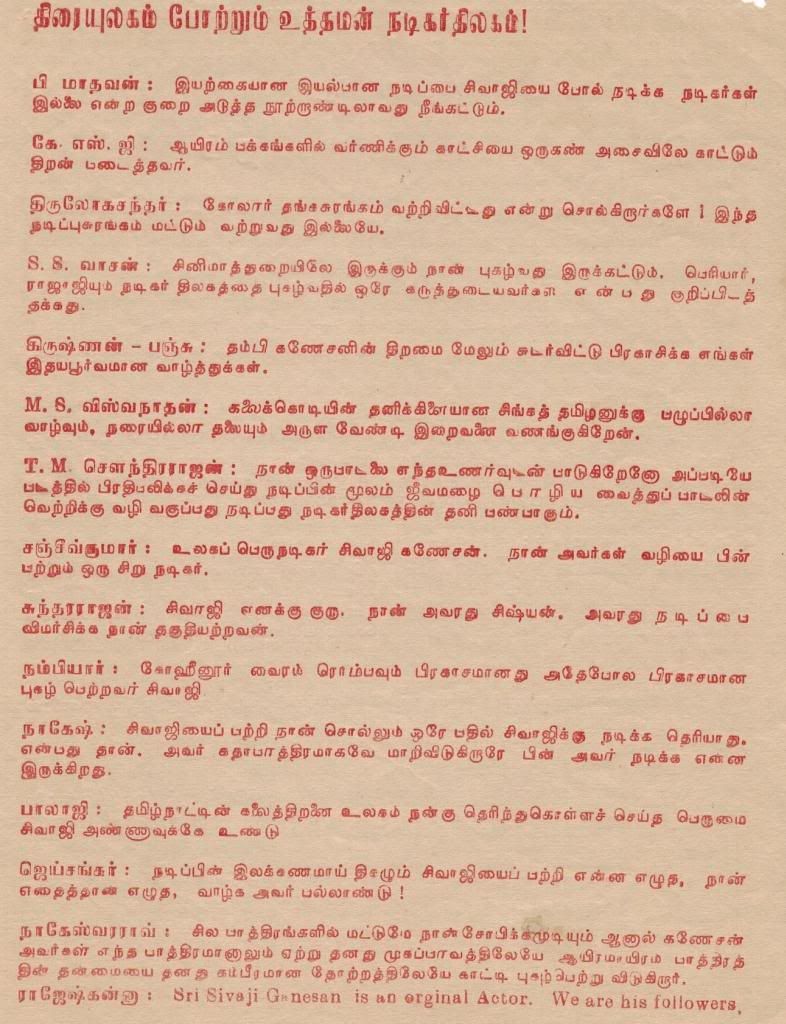 திரையுலகம் போற்றும் உத்தமன் நடிகர்திலகம்!
பி மாதவன் : இயற்கையான இயல்பான நடிப்பை சிவாஜியை போல் நடிக்க நடிகர்கள்
இல்லை என்ற குறை அடுத்த நூற்றாண்டிலாவது நீங்கட்டும்.
கே. எஸ். ஜி : ஆயிரம் பக்கங்களில் வர்ணிக்கும் காட்சியை ஒருகண் அசைவிலே காட்டும்
திறன் படைத்தவர்.
திருலோகசந்தர் : கோலார் தங்கசுரங்கம் வற்றிவிட்டது என்று சொல்கிறார்களே ! இந்த
நடிப்புசுரங்கம் மட்டும் வற்றுவது இல்லையே.
S. S. வாசன் : சினிமாத்துறையிலே இருக்கும் நான் புகழ்வது இருக்கட்டும். பெரியார்,
ராஜாஜியும் நடிகர் திலகத்தை புகழ்வதில் ஒரே கருத்துடையவர்கள் என்பது குறிப்பிடத்
தக்கது.
கிருஷ்ணன் - பஞ்சு : தம்பி கணேசனின் திறமை மேலும் சுடர்விட்டு பிரகாசிக்க எங்கள்
இதயபூர்வமான வாழ்த்துக்கள்.
M. S. விஸ்வநாதன் : கலைக்கொடியின் தனிக்கிளையான சிங்கத் தமிழனுக்கு பழுப்பில்லா
வாழ்வும், நரையில்லா தலையும் அருள வேண்டி இறைவனை வணங்குகிறேன்.
T. M. சௌந்திரராஜன் : நான் ஒருபாடலை எந்தஉணர்வுடன் பாடுகிறேனோ அப்படியே
படத்தில் பிரதிபலிக்கச் செய்து நடிப்பின் மூலம் ஜீவமழை பொழிய வைத்துப் பாடலின்
வெற்றிக்கு வழி வகுப்பது நடிப்பது நடிகர்திலகத்தின் தனி பண்பாகும்.
சஞ்சீவ்குமார் : உலகப் பெருநடிகர் சிவாஜி கணேசன். நான் அவர்கள் வழியை பின்
பற்றும் ஒரு சிறு நடிகர்.
சுந்தரராஜன் : சிவாஜி எனக்கு குரு. நான் அவரது சிஷ்யன். அவரது நடிப்பை
விமர்சிக்க நான் தகுதியற்றவன்.
நம்பியார் : கோஹினூர் வைரம் ரொம்பவும் பிரகாசமானது அதேபோல பிரகாசமான
புகழ் பெற்றவர் சிவாஜி
நாகேஷ் : சிவாஜியைப் பற்றி நான் சொல்லும் ஒரே பதில் சிவாஜிக்கு நடிக்க தெரியாது.
என்பது தான். அவர் கதாபாத்திரமாகவே மாறிவிடுகிறாரே பின் அவர் நடிக்க என்ன
இருக்கிறது.
பாலாஜி : தமிழ்நாட்டின் கலைத்திறனை உலகம் நன்கு தெரிந்துகொள்ளச் செய்த பெருமை
சிவாஜி அண்ணாவுக்கே உண்டு
ஜெய்சங்கர் : நடிப்பின் இலக்கணமாய் திகழும் சிவாஜியைப் பற்றி என்ன எழுத, நான்
எதைத்தான் எழுத, வாழ்க அவர் பல்லாண்டு !
நாகேஸ்வரராவ் : சில பாத்திரங்களில் மட்டுமே நான்சோபிக்கமுடியும் ஆனால் கணேசன்
அவர்கள் எந்த பாத்திரமானாலும் ஏற்று தனது முகப்பாவத்திலேயே ஆயிரமாயிரம் பாத்திரத்
தின் தன்மையை தனது கம்பீரமான தோற்றத்திலேயே காட்டி புகழ்பெற்று விடுகிறார்.
ராஜேஷ்கன்னா : Sri Sivaji Ganesan is an orginal Actor. We are his followers,